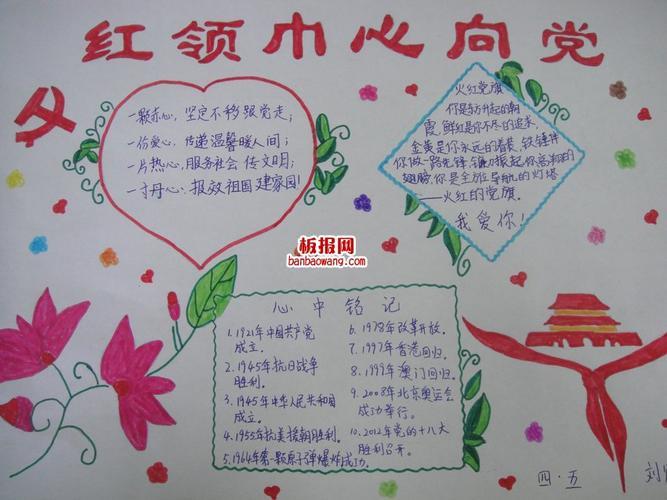 红领巾心向党
一颗赤心，坚定不移跟党走；
一份爱心，传递温馨暖人间；
一片热心，服务社会传文明；
一寸丹心，报效祖国建家园！
火红党旗
你是东方升起的朝
霞，鲜红是你不尽的追求，
金黄是你永远的着装，铁锤伴
你做一路先锋，镰刀振起你
翅膀，你是全方位导航的灯塔
——火红的党旗。
我爱你！
板报网
banbaowang.com
心中铭记
1.1921年中国共产党
成立。
2.1945年抗日战争
胜利。
3.1945年中华人民共和国
成立。
4.1955年抗美援朝胜利。
5.1964年第一颗原子弹爆炸成功。
6.1978年改革开放。
7.1997年香港回归。
8.1999年澳门回归。
9.2008年北京奥运会
成功举行。
10.2012年党的十八大
胜利召开。
四·五
刘